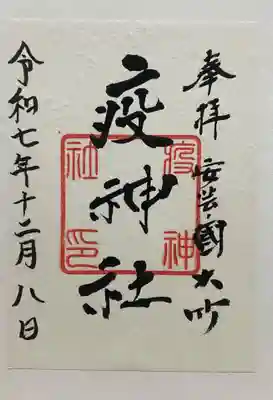 奉拝 安芸國大吟
疫神社
疫神社印
令和七年十二月八日